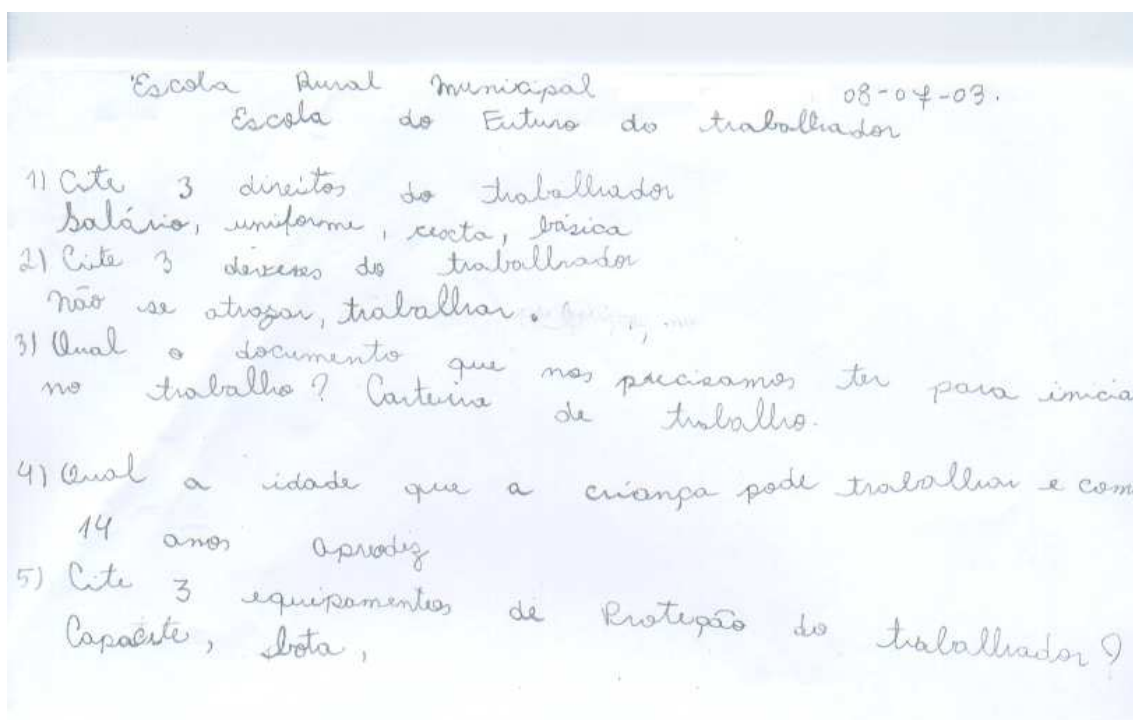 Escola Rural Municipal 08-07-03.
Escola do Futuro do trabalhador
1) Cite 3 direitos do trabalhador
Salário, uniforme, cexta, básica
2) Cite 3 deveres do trabalhador
Não se atrazar, trabalhar.
3) Qual o documento que nos precisamos ter para inicia
no trabalho? Carteira de trabalho.
4) Qual a idade que a criança pode trabalhar e com
14 anos aprediz
5) Cite 3 equipamentos de Proteção do trabalhador?
Capacite, bota,